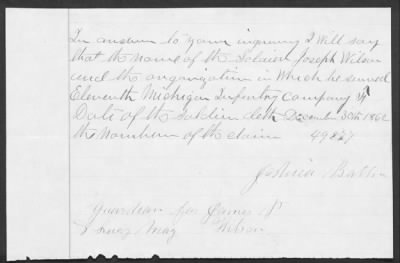 In answer to your inquirey I Will say
that the Name of the Soldier Joseph Wilson
and the organization in Which he served
Eleventh Michigan Infentry Company
Date of the soldier deth December 30th 1862
the Number of the claim 49827
Joshua
guardean for James
May Wilson